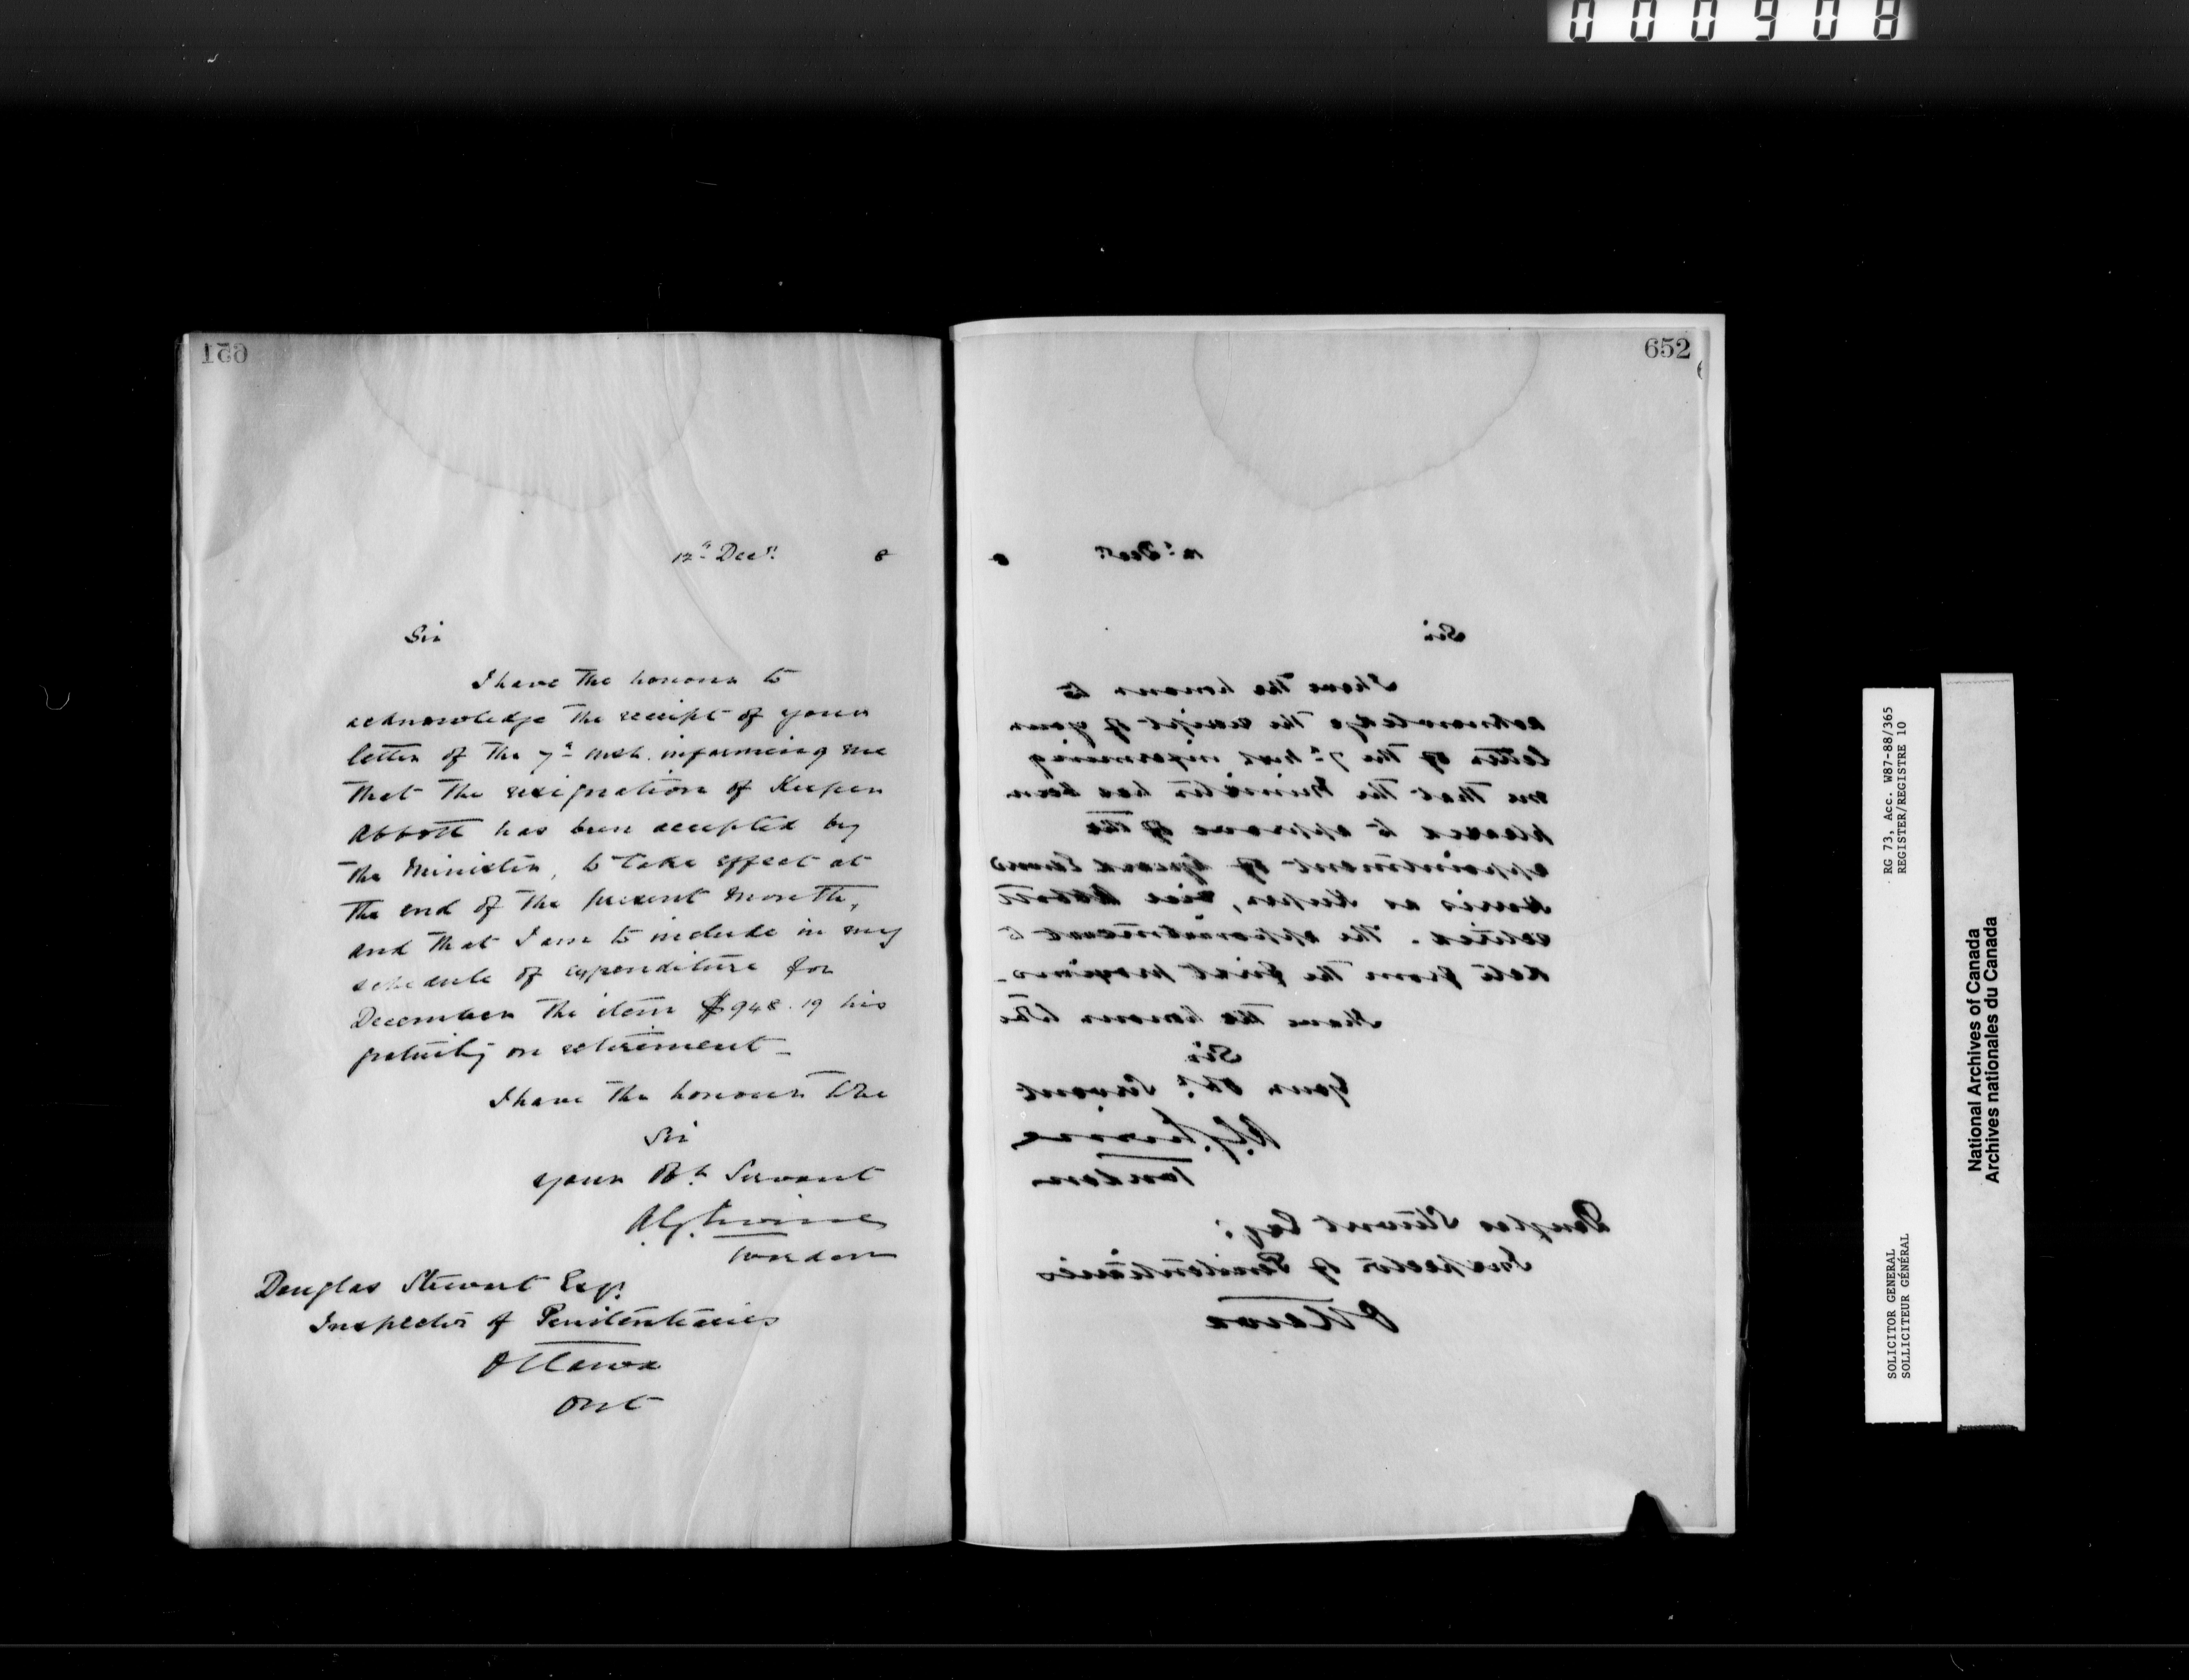 000908
651
12th Decr. 8
Sir
I have the honour to
acknowledge the receipt of your
letter of the 7th inst. informing me
that the resignation of Keeper
Abbott has been accepted by
the Minister, to take effect at
the end of the present month,
and that I am to include in my
schedule of expenditure for
December the item $948.19 his
gratuity on retirement_
I have the honour to be
Sir
your Obt. Servant
Warden
Douglas Stewart Esqr.
Inspector of Penitentiaries
Ottawa
Ont
652
12th Decr. 8
Sir
I have the honour to
acknowledge the receipt of your
letter of the 7th inst informing
me that the Minister has been
pleased to approve of the
appointment of Guard
as Keeper, vice Abbott
retired. The appointment to
date from the first proximo_
I have the honour to be
Sir
Your Obt. Servant
Warden
Douglas Stewart Esqr.
Inspector of Penitentiaries
Ottawa
RG 73, Acc. W87-88/365
REGISTER/REGISTRE 10
SOLICITOR GENERAL
SOLLICITEUR GÉNÉRAL
National Archives of Canada
Archives nationales du Canada